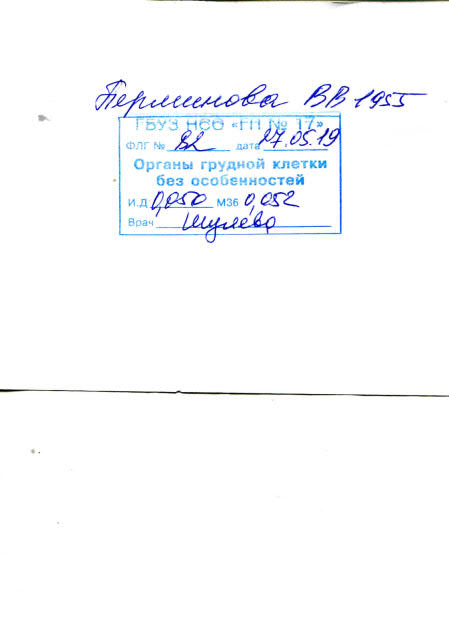 Перминова ВВ 1955
ГБУЗ НСО «ГП № 17»
ФЛГ № 82 дата 27.05.19
Органы грудной клетки
без особенностей
И.Д 0,050 МЗб 0,052
Врач Шулева